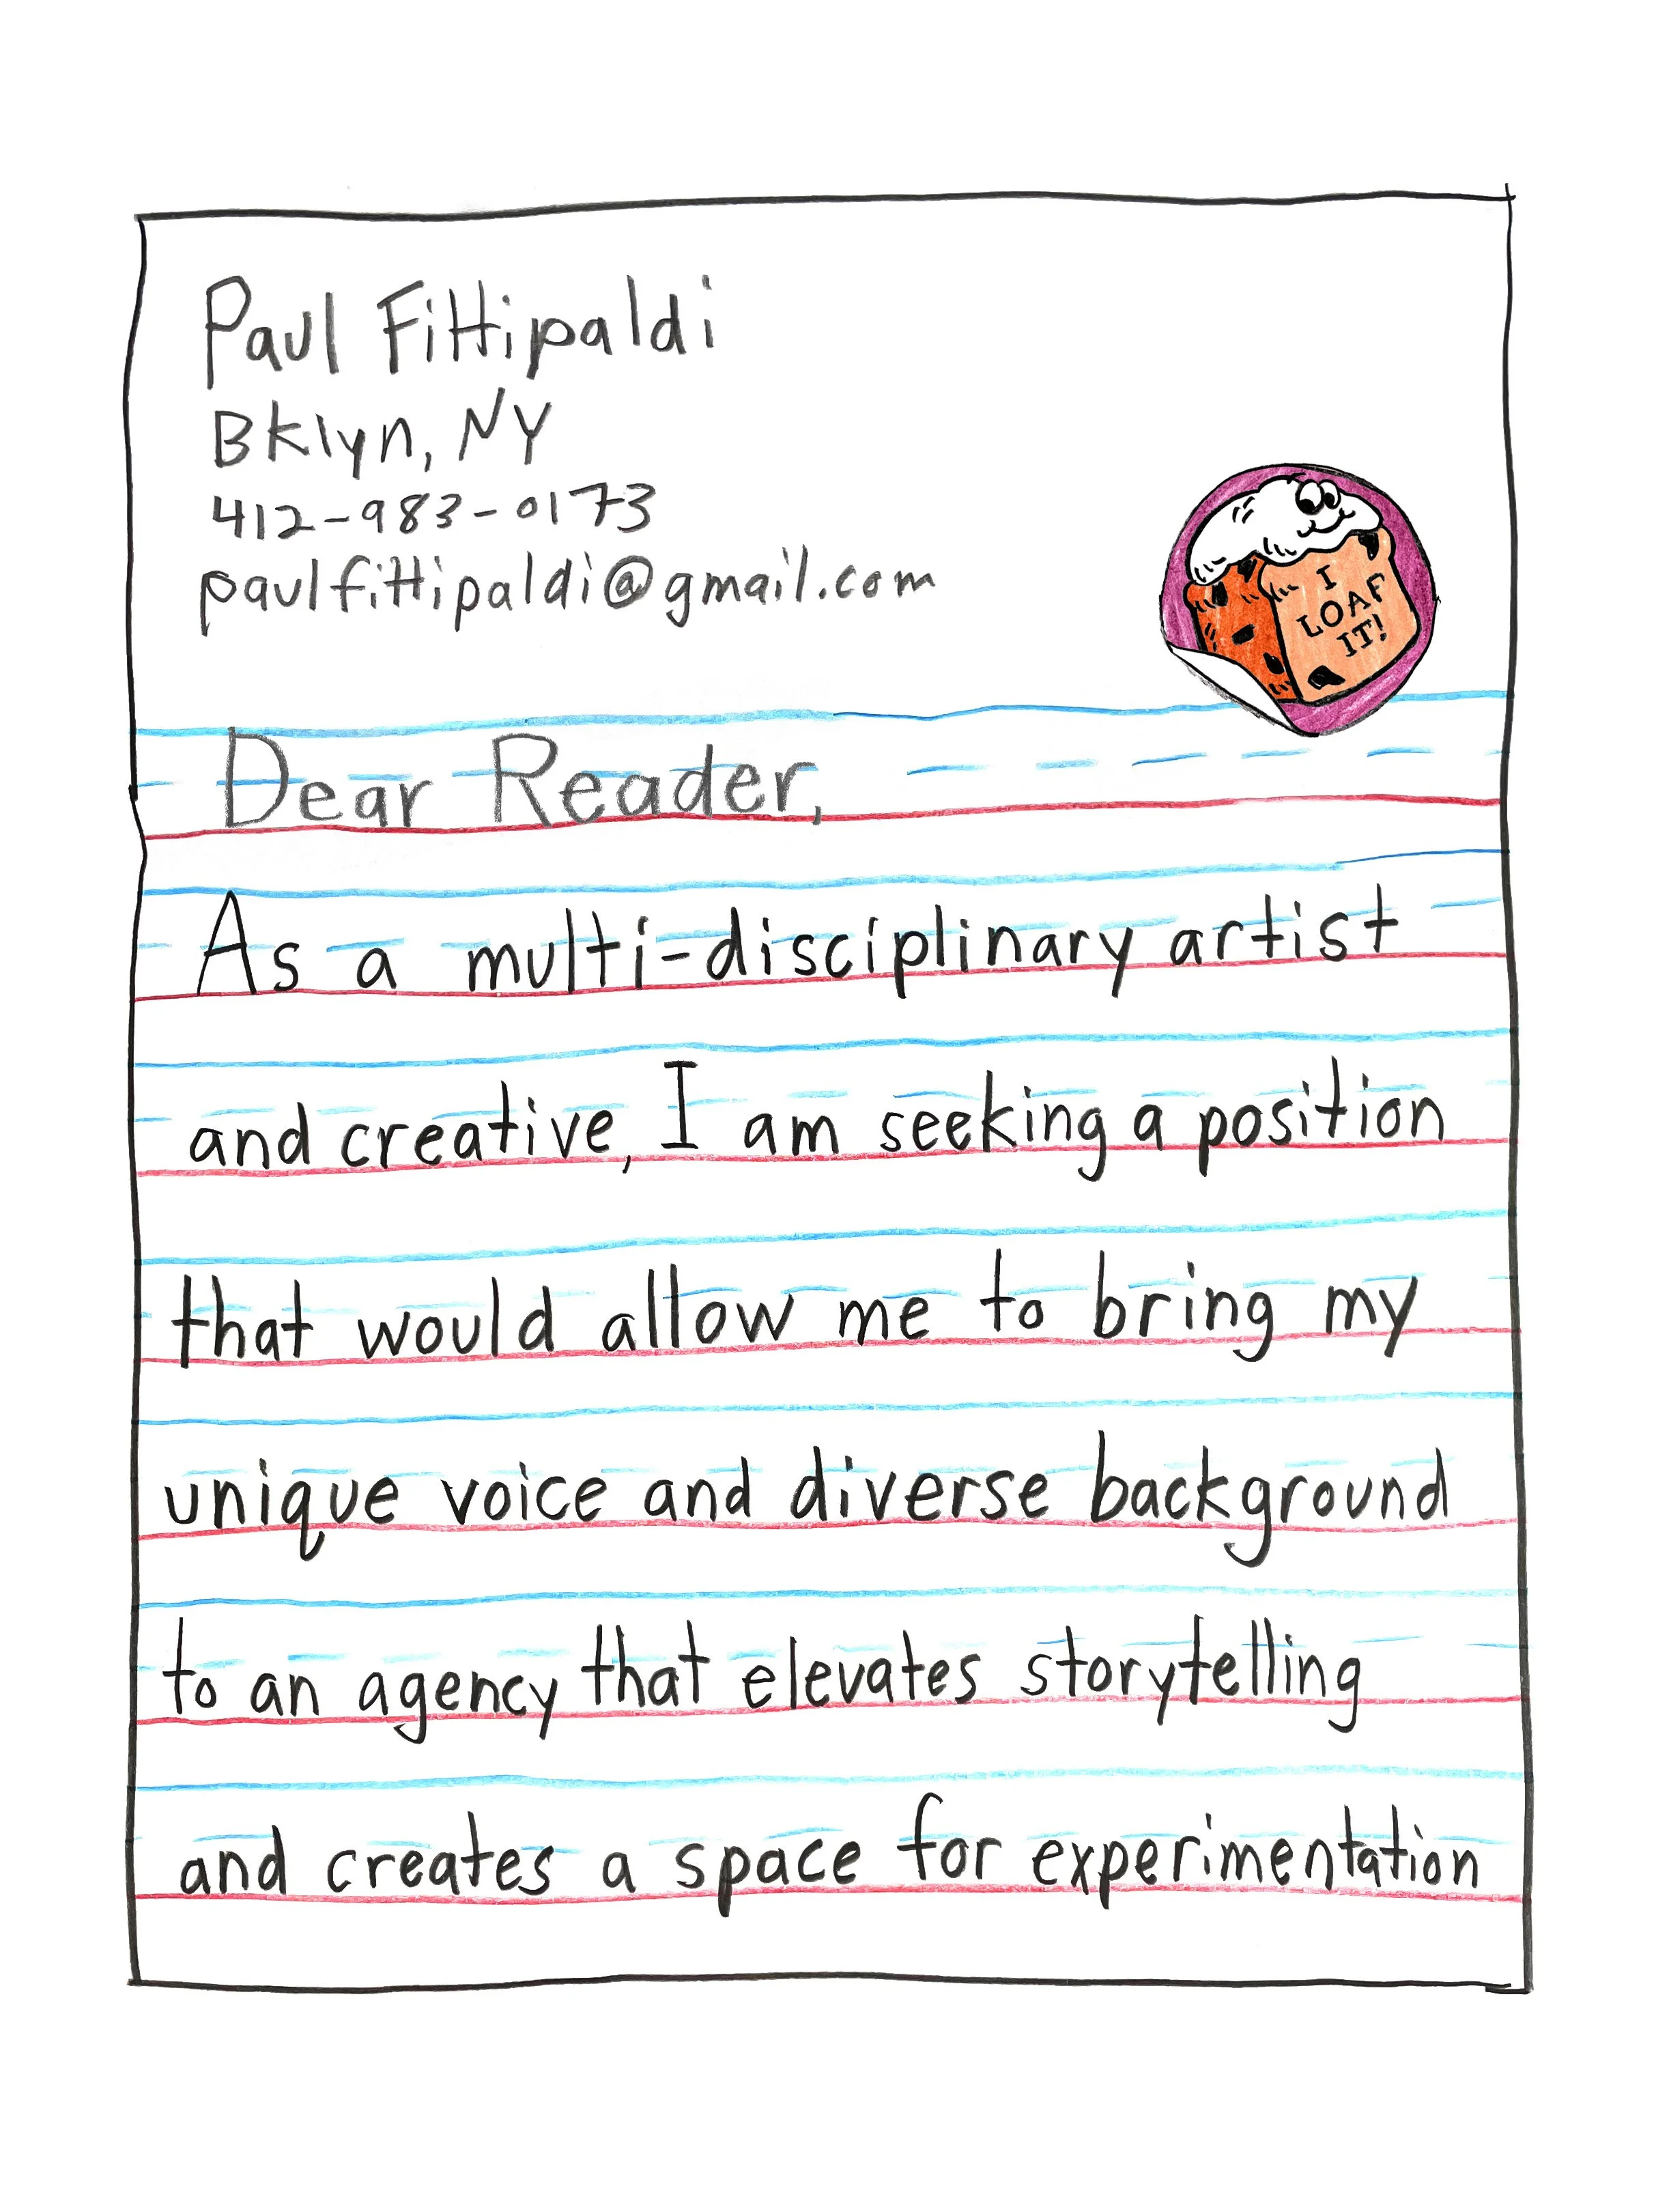 Paul Fittipaldi
Bklyn, NY
412-983-0173
paulfittipaldi@gmail.com
I
LOAF
IT!
Dear Reader,
As a multi-disciplinary artist
and creative, I am seeking a position
that would allow me to bring my
unique voice and diverse background
to an agency that elevates storytelling
and creates a space for experimentation